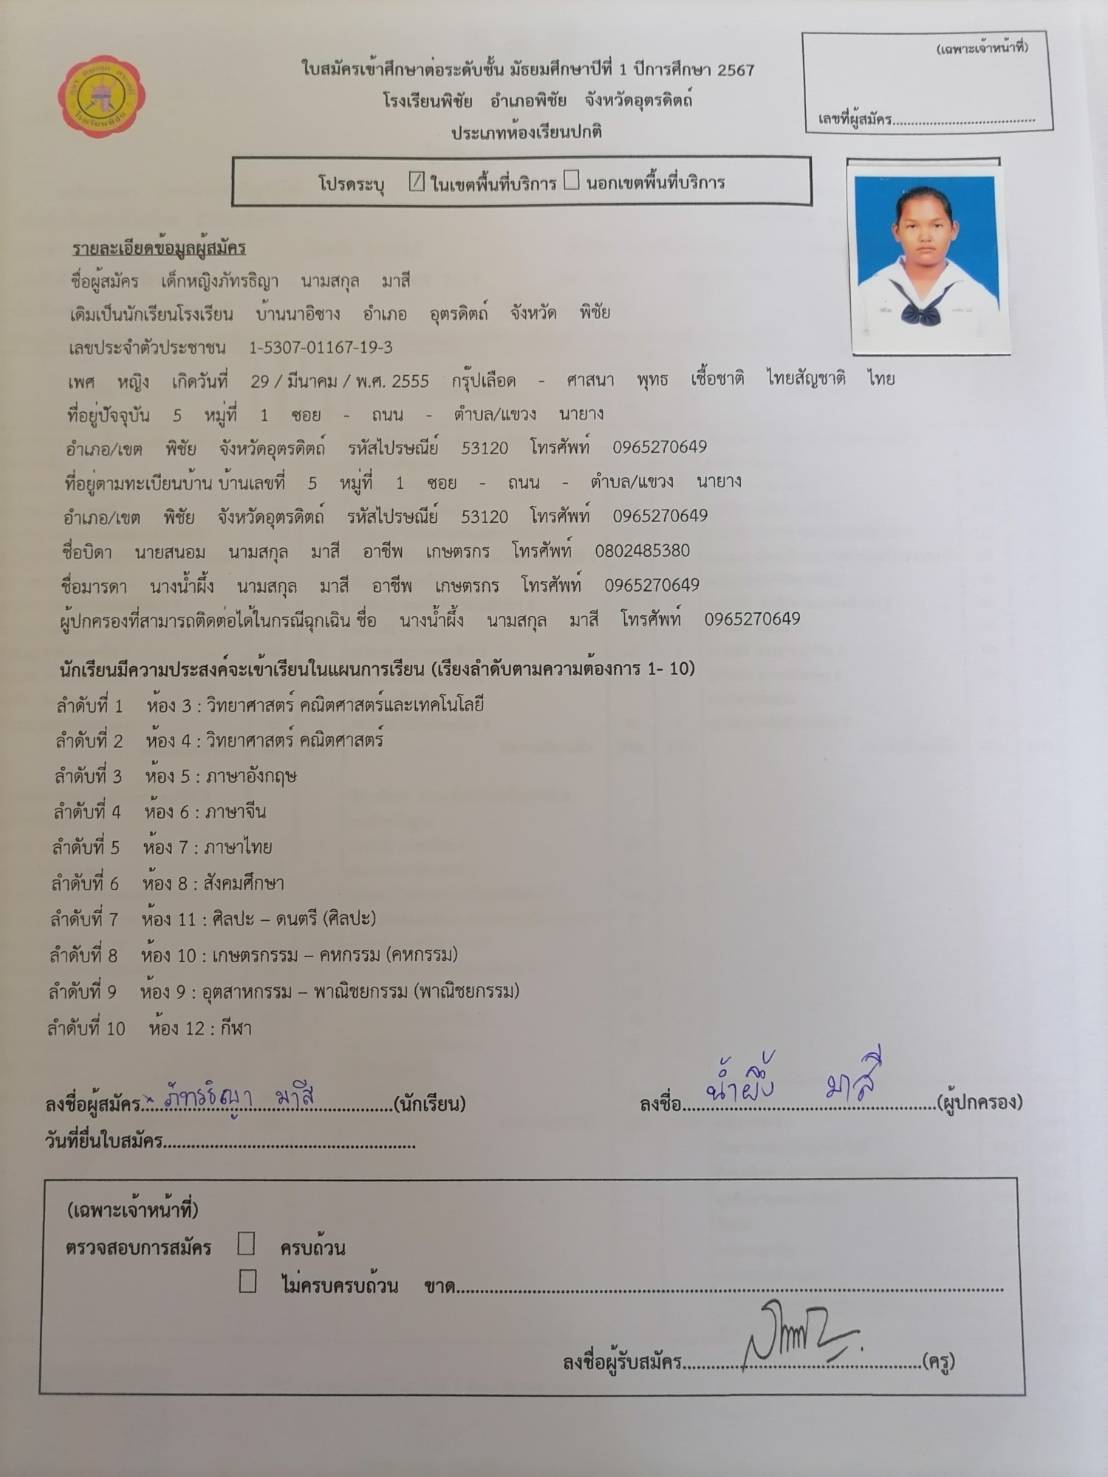 (เฉพาะเจ้าหน้าที่)
ใบสมัครเข้าศึกษาต่อระดับชั้น มัธยมศึกษาปีที่ 1 ปีการศึกษา 2567
โรงเรียนพิชัย อำเภอพิชัย จังหวัดอุตรดิตถ์
ประเภทห้องเรียนปกติ
เลขที่ผู้สมัคร....................................
โปรดระบุ ☑ ในเขตพื้นที่บริการ ☐ นอกเขตพื้นที่บริการ
รายละเอียดข้อมูลผู้สมัคร
ชื่อผู้สมัคร เด็กหญิงภัทรธิญา นามสกุล มาสี
เดิมเป็นนักเรียนโรงเรียน บ้านนาอิซาง อำเภอ อุตรดิตถ์ จังหวัด พิชัย
เลขประจำตัวประชาชน 1-5307-01167-19-3
เพศ หญิง เกิดวันที่ 29 / มีนาคม / พ.ศ. 2555 กรุ๊ปเลือด - ศาสนา พุทธ เชื้อชาติ ไทยสัญชาติ ไทย
ที่อยู่ปัจจุบัน 5 หมู่ที่ 1 ซอย - ถนน - ตำบล/แขวง นายาง
อำเภอ/เขต พิชัย จังหวัดอุตรดิตถ์ รหัสไปรษณีย์ 53120 โทรศัพท์ 0965270649
ที่อยู่ตามทะเบียนบ้าน บ้านเลขที่ 5 หมู่ที่ 1 ซอย - ถนน - ตำบล/แขวง นายาง
อำเภอ/เขต พิชัย จังหวัดอุตรดิตถ์ รหัสไปรษณีย์ 53120 โทรศัพท์ 0965270649
ชื่อบิดา นายสนอม นามสกุล มาสี อาชีพ เกษตรกร โทรศัพท์ 0802485380
ชื่อมารดา นางน้ำผึ้ง นามสกุล มาสี อาชีพ เกษตรกร โทรศัพท์ 0965270649
ผู้ปกครองที่สามารถติดต่อได้ในกรณีฉุกเฉิน ชื่อ นางน้ำผึ้ง นามสกุล มาสี โทรศัพท์ 0965270649
นักเรียนมีความประสงค์จะเข้าเรียนในแผนการเรียน (เรียงลำดับตามความต้องการ 1- 10)
ลำดับที่ 1 ห้อง 3 : วิทยาศาสตร์ คณิตศาสตร์และเทคโนโลยี
ลำดับที่ 2 ห้อง 4 : วิทยาศาสตร์ คณิตศาสตร์
ลำดับที่ 3 ห้อง 5 : ภาษาอังกฤษ
ลำดับที่ 4 ห้อง 6 : ภาษาจีน
ลำดับที่ 5 ห้อง 7 : ภาษาไทย
ลำดับที่ 6 ห้อง 8 : สังคมศึกษา
ลำดับที่ 7 ห้อง 11 : ศิลปะ – ดนตรี (ศิลปะ)
ลำดับที่ 8 ห้อง 10 : เกษตรกรรม – คหกรรม (คหกรรม)
ลำดับที่ 9 ห้อง 9 : อุตสาหกรรม – พาณิชยกรรม (พาณิชยกรรม)
ลำดับที่ 10 ห้อง 12 : กีฬา
ลงชื่อผู้สมัคร...ภัทรธิญา มาสี...(นักเรียน) ลงชื่อ...น้ำผึ้ง มาสี...(ผู้ปกครอง)
วันที่ยื่นใบสมัคร..................................................
(เฉพาะเจ้าหน้าที่)
ตรวจสอบการสมัคร ☐ ครบถ้วน
☐ ไม่ครบครบถ้วน ขาด..................................................
ลงชื่อผู้รับสมัคร..................................................(ครู)